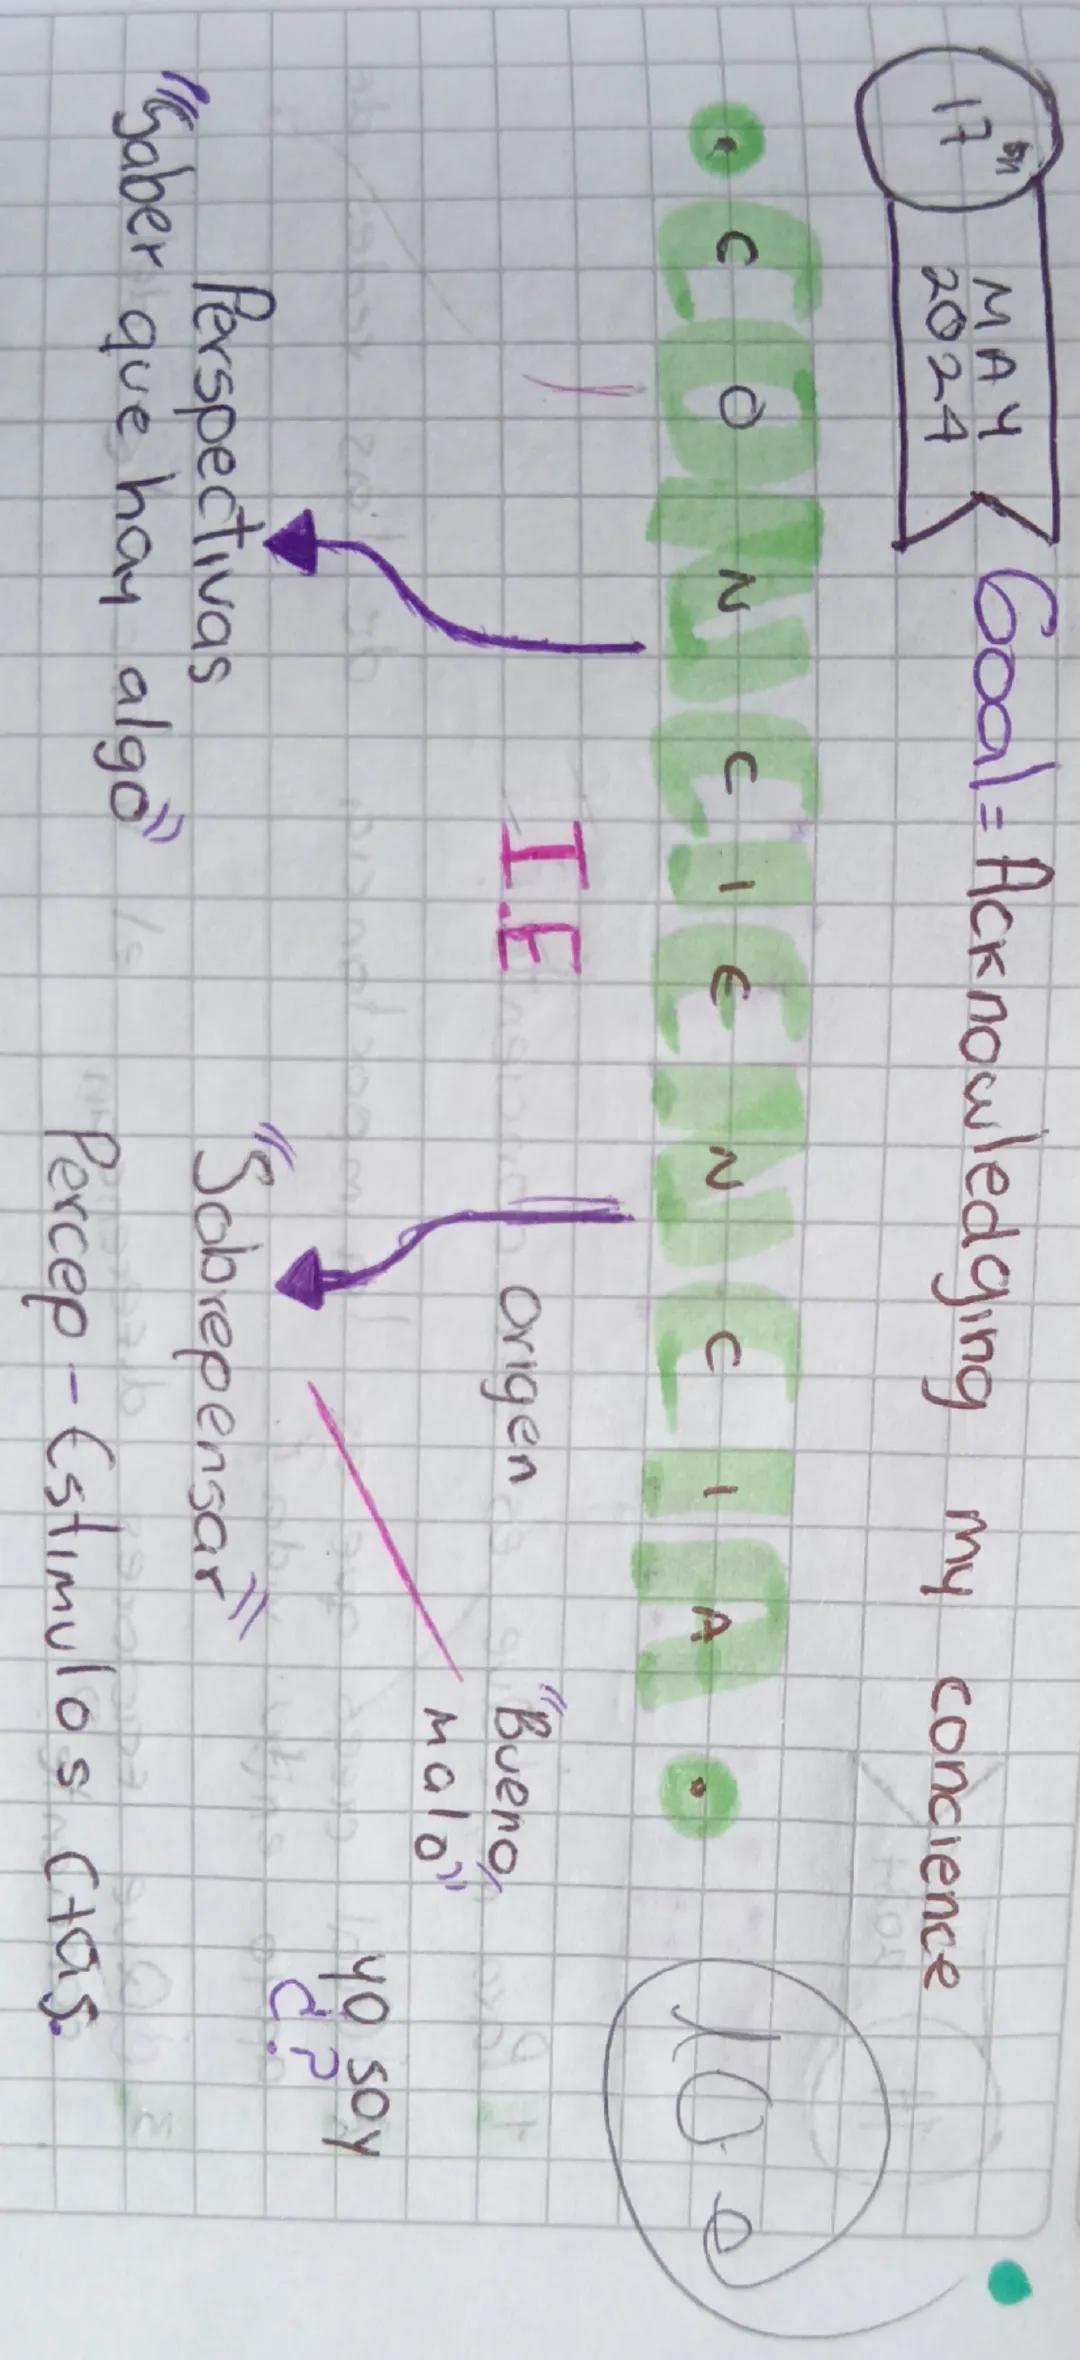 17th MAY 2024
Goal = Acknowledging my concience
• CONCIENCIA •
I.E
Origen
"Bueno,
malo"
Perspectivas
"Saber que hay algo"
"Sobrepensar"
Percep - Estimulos Ctas.
yo soy
C.?
10.